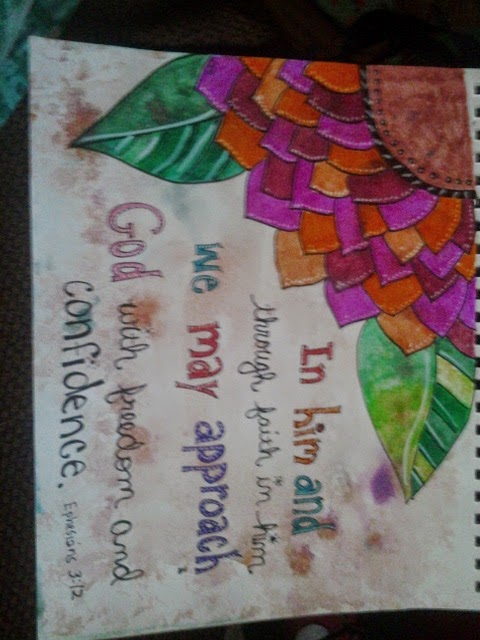 In him and
through faith in him
we may approach
God with freedom and
confidence. Ephesians 3:12